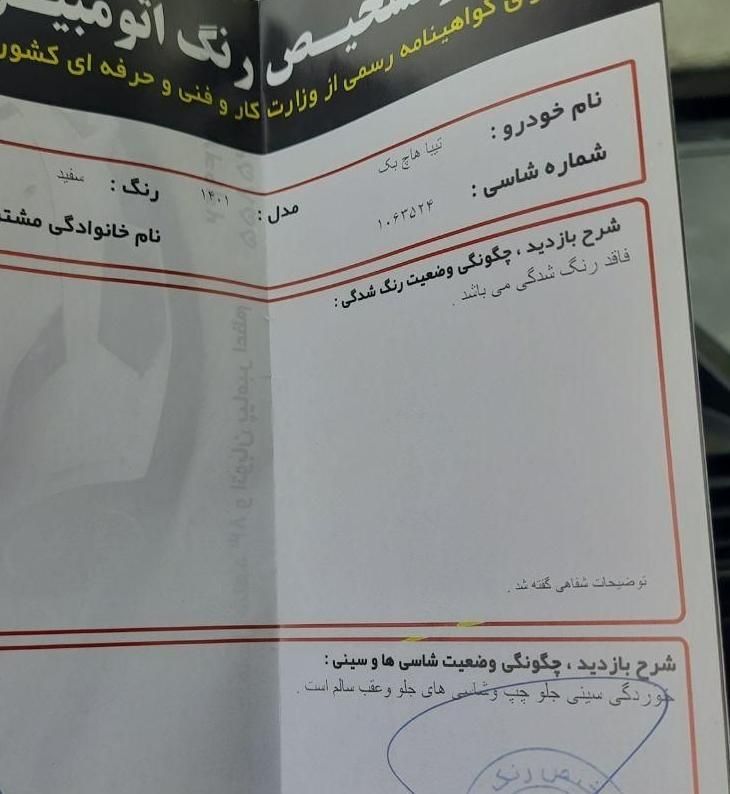 تشخیص رنگ اتومبیل
گواهینامه رسمی از وزارت کار و فنی و حرفه ای کشور
نام خودرو : تیبا هاچ بک
شماره شاسی : ۱۰۶۳۵۲۴
مدل : ۱۴۰۱
رنگ : سفید
نام خانوادگی
شرح بازدید ، چگونگی وضعیت رنگ شدگی :
فاقد رنگ شدگی می باشد .
توضیحات شفاهی گفته شد .
شرح بازدید ، چگونگی وضعیت شاسی ها و سینی :
خوردگی سینی جلو چپ وشاسی های جلو وعقب سالم است .